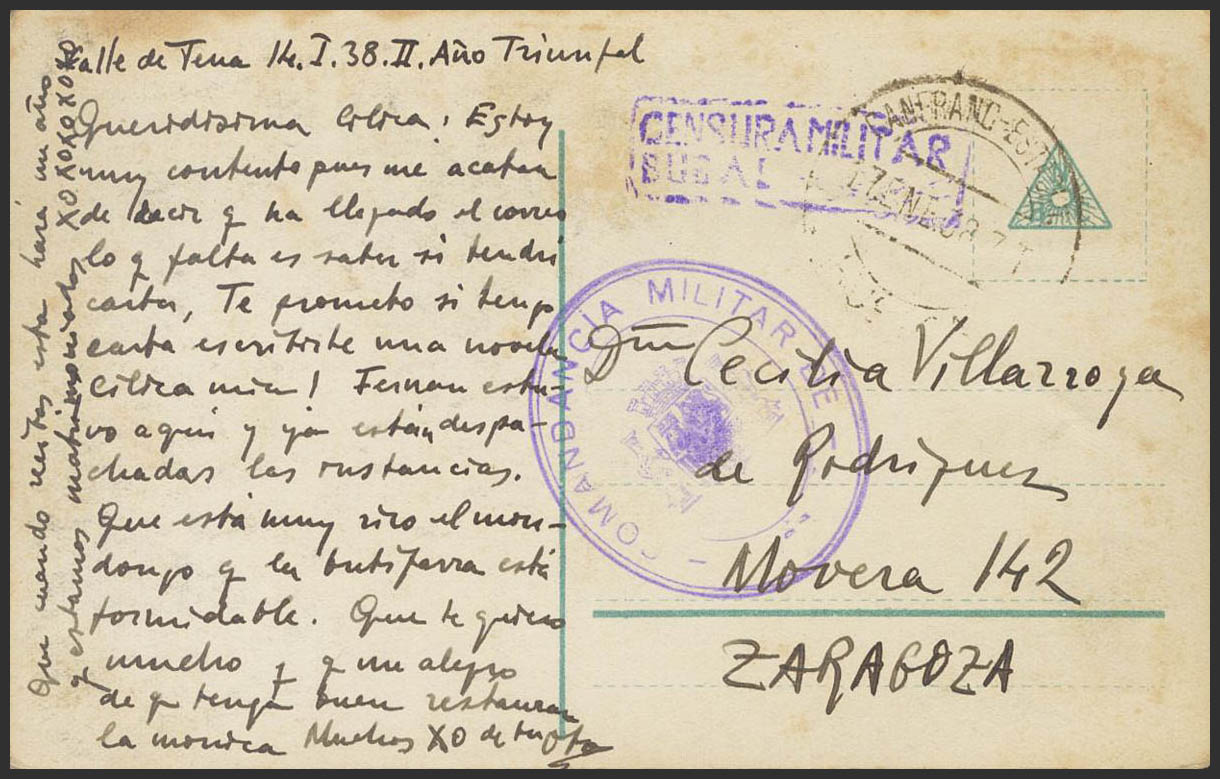 Valle de Tena 14.I.38.II.Año Triunfal
Queridisima Cilica: Estoy
muy contento pues me acaban
de decir q ha llegado el correo
lo q falta es saber si tendré
carta, Te prometo si tengo
carta escribirte una novela
Cilica mia! Fernan estu-
vo aquí y ya están despa-
chadas las instancias.
Que está muy rico el mon-
dongo q la butifarra está
formidable. Que te quiero
mucho y q me alegro
de q tenga buen
la monica Muchos XO de tu
Que cuando recibas esta hará un año
q estamos matrimoniados XO XO XO XO XO XO
CENSURA MILITAR
BUBAL
CANFRANC-EST
17 ENE 38 7T
COMANDANCIA MILITAR DE
Dña Cecilia Villarroya
de Rodríguez
Movera 142
ZARAGOZA